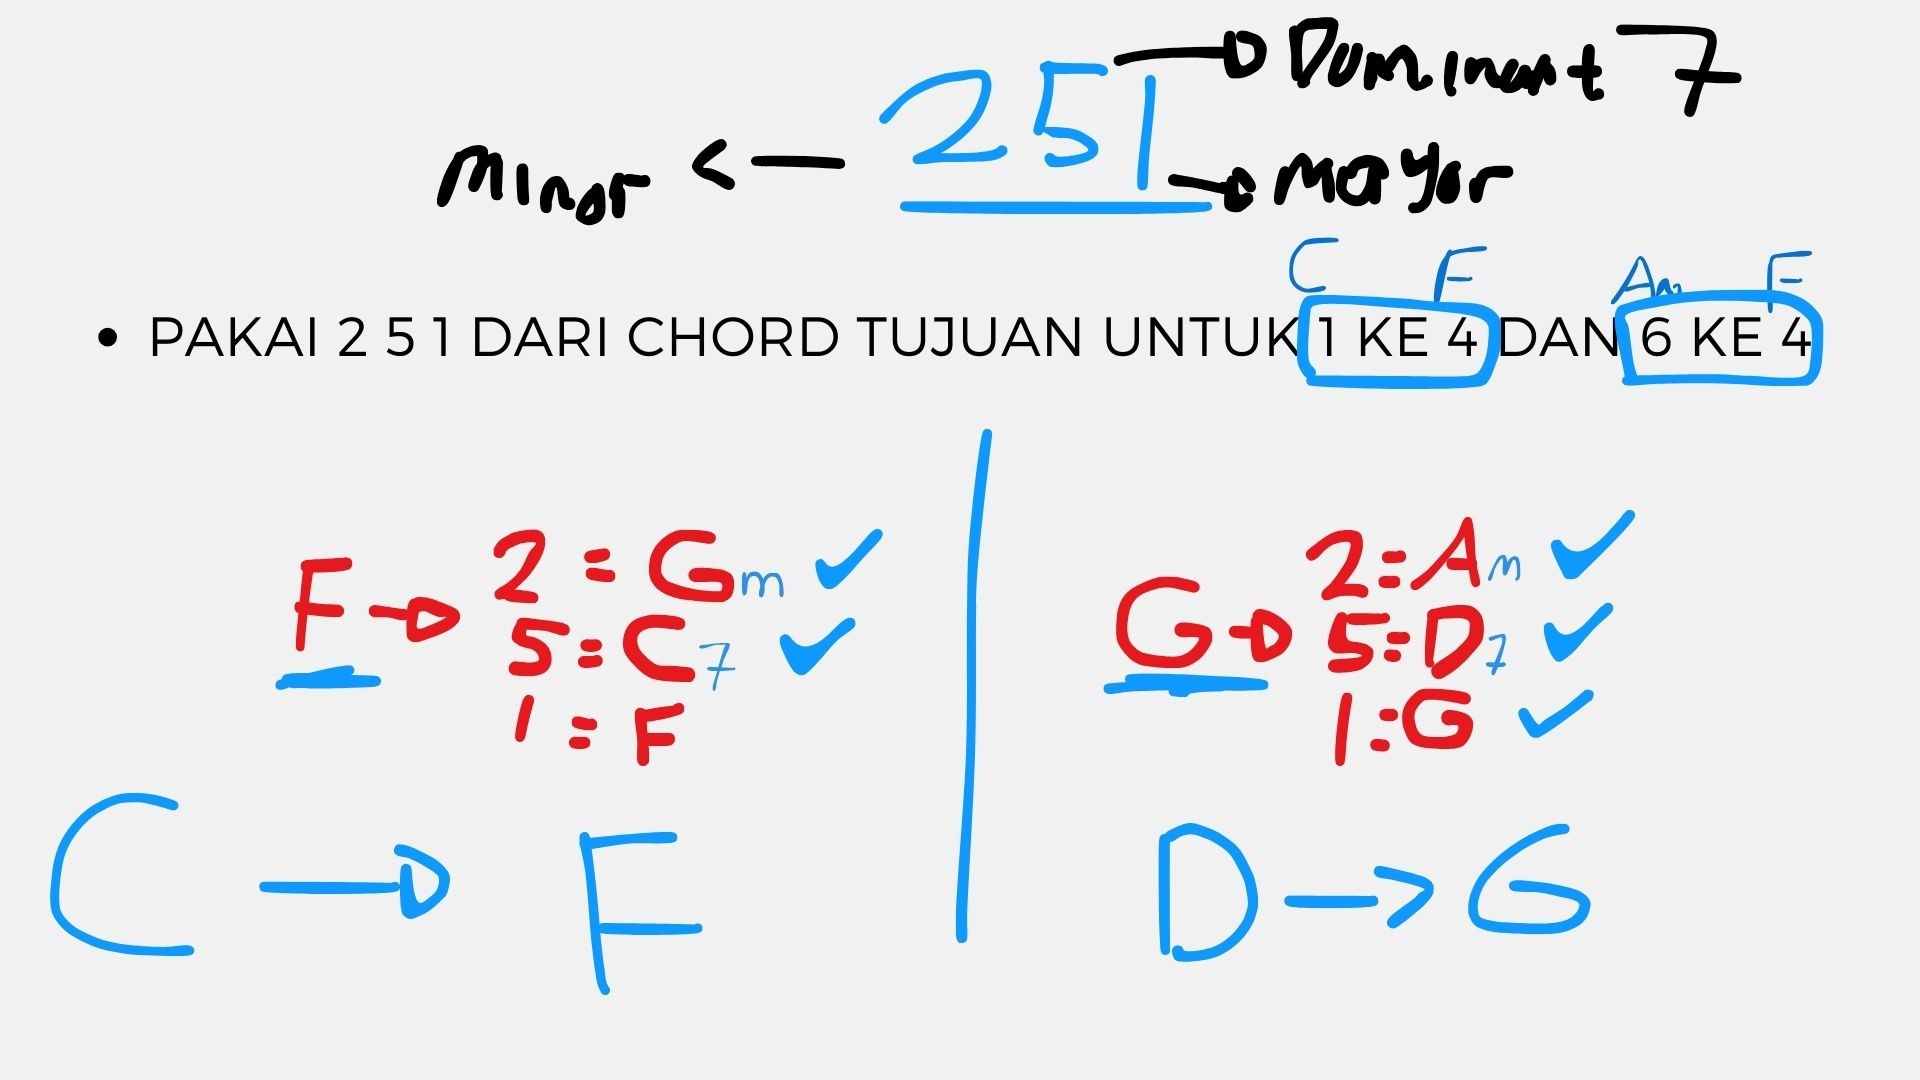 251 → Dominant 7
Minor ← → Mayor
C F Am F
• PAKAI 2 5 1 DARI CHORD TUJUAN UNTUK 1 KE 4 DAN 6 KE 4
F → 2 = Gm ✓
5 = C7 ✓
1 = F
G → 2 = Am ✓
5 = D7 ✓
1 = G ✓
C → F
D → G